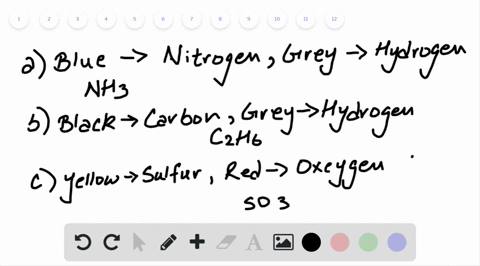 1 2 3 4 5 6 7 8 9 10 11 12
a) Blue → Nitrogen, Grey → Hydrogen
NH3
b) Black → Carbon, Grey → Hydrogen
C2H6
c) Yellow → Sulfur, Red → Oxeygen
SO3
A